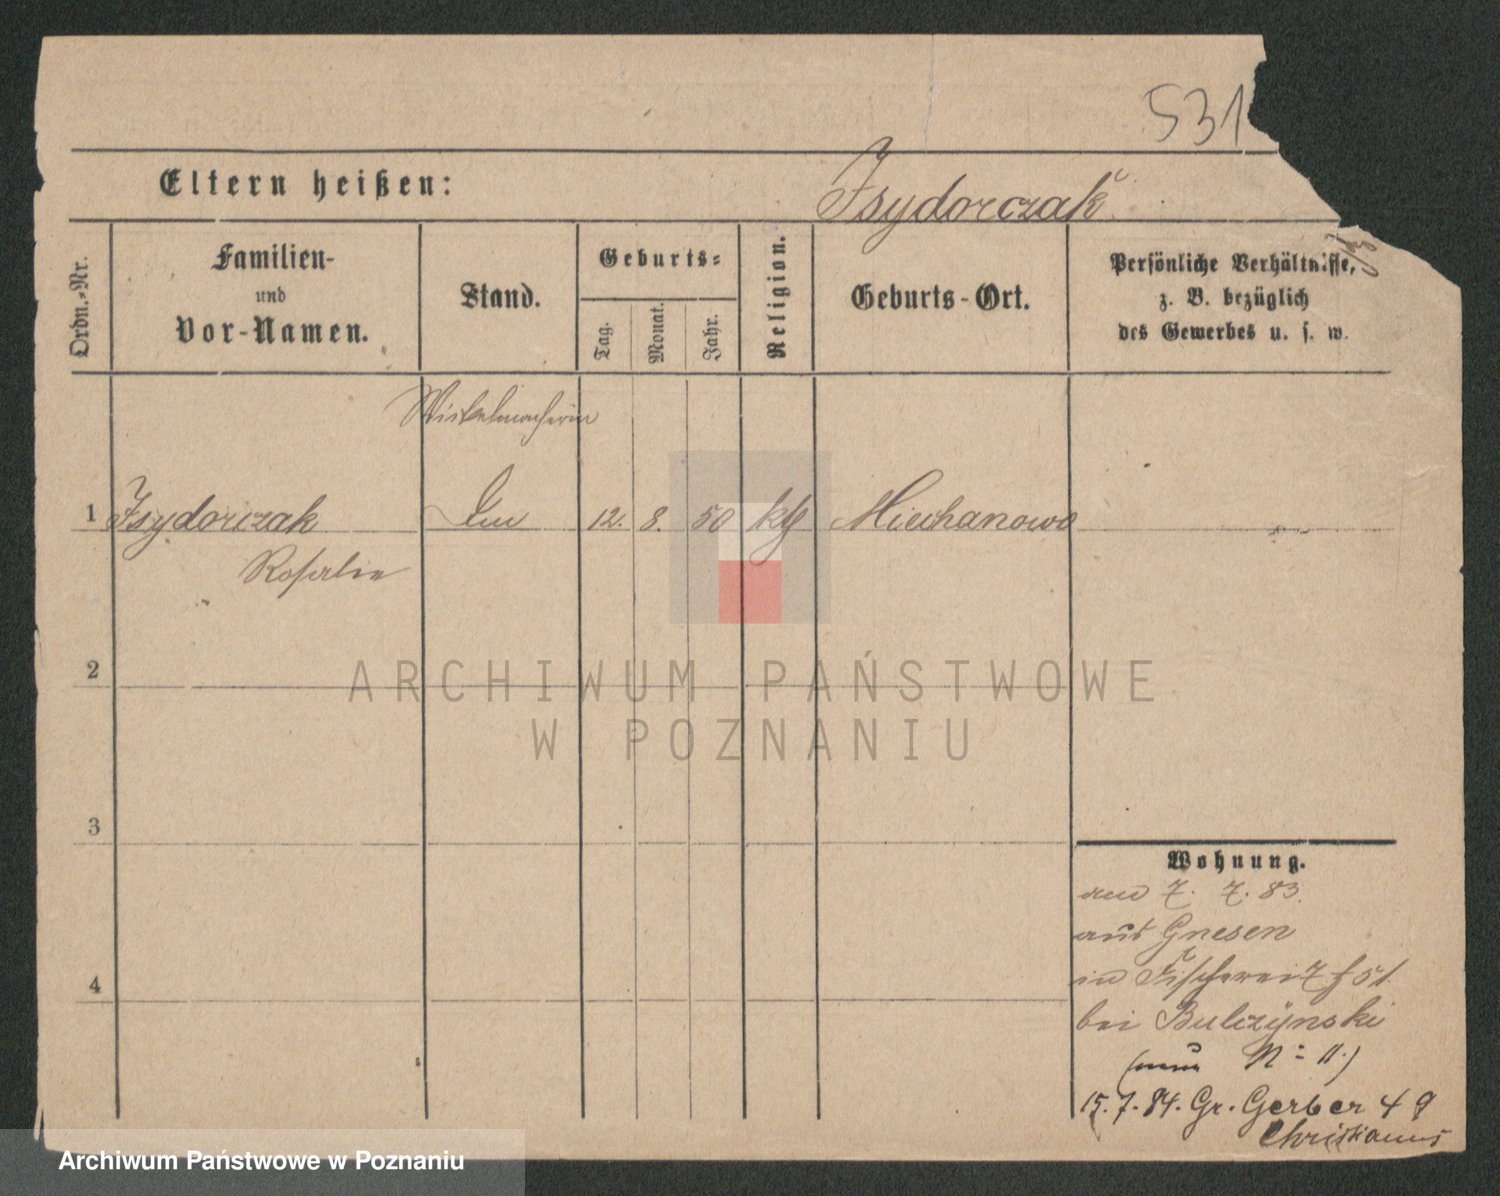 531
Eltern heißen:
Isydorczak
Ordn.-Nr.
Familien-
und
Vor-Namen.
Stand.
Geburts-
Tag.
Monat.
Jahr.
Religion.
Geburts-Ort.
Persönliche Verhältnisse,
z. B. bezüglich
des Gewerbes u. s. w.
1 Isydorczak 12. 8. 50 kth Miechanowo
Rosalie
2
3
4
ARCHIWUM PAŃSTWOWE
W POZNANIU
Wohnung.
am 7. 7. 83.
aus Gnesen
in Fischerei 51
bei Bulczynski
(neue N= 11.)
15. 7. 84. Gr. Gerber 49
Christianus
Archiwum Państwowe w Poznaniu